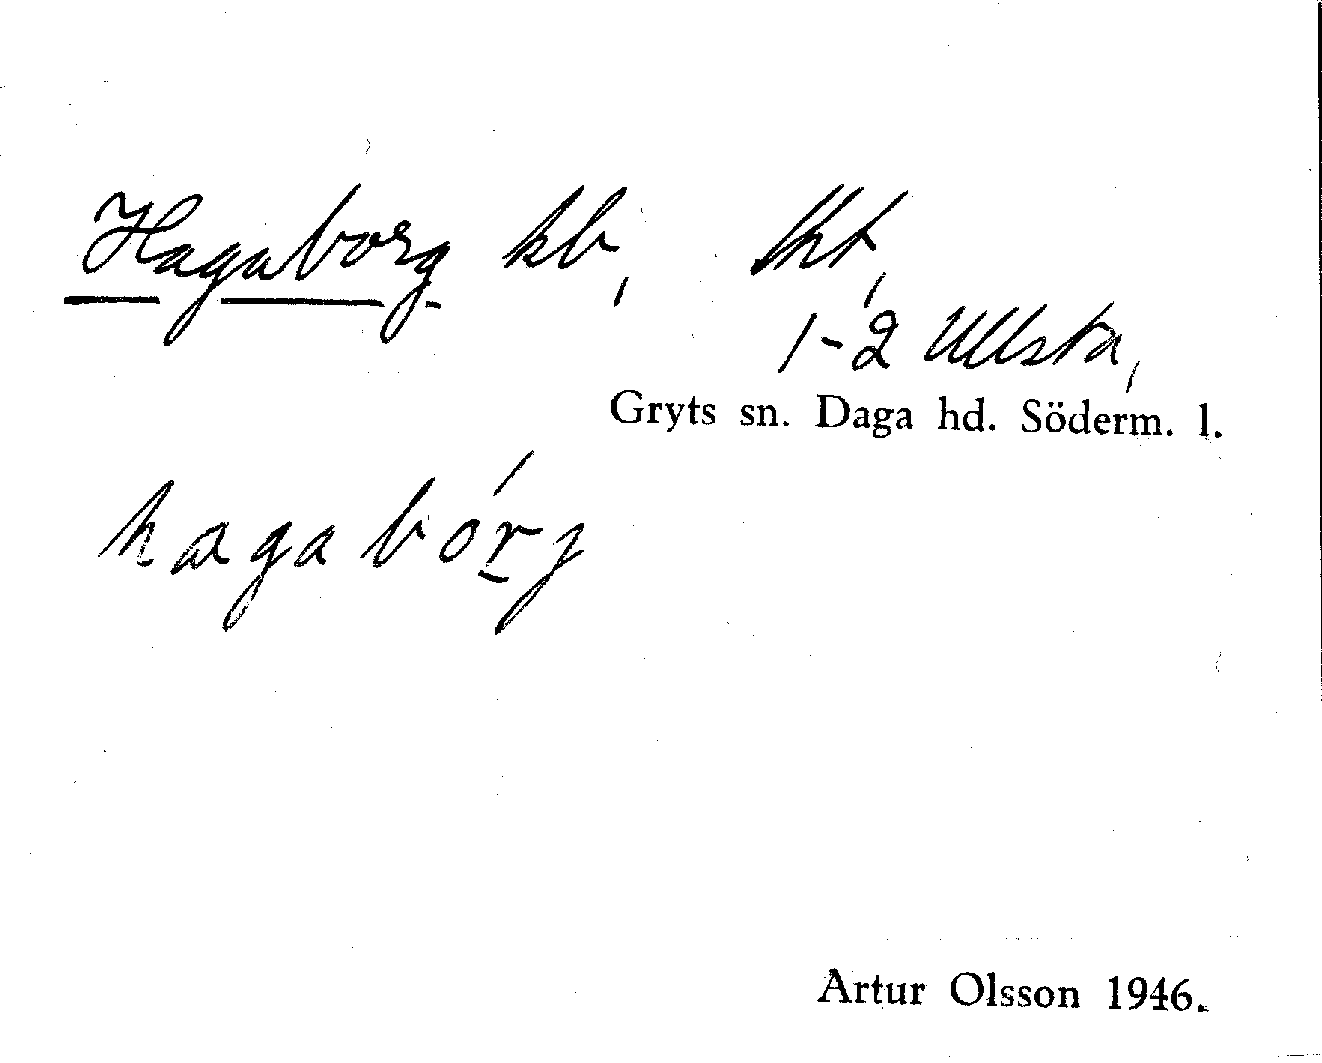 Hagaborg kb, lht,
1-2 Ullsta,
Gryts sn. Daga hd. Söderm. l.
hagabórj
Artur Olsson 1946.